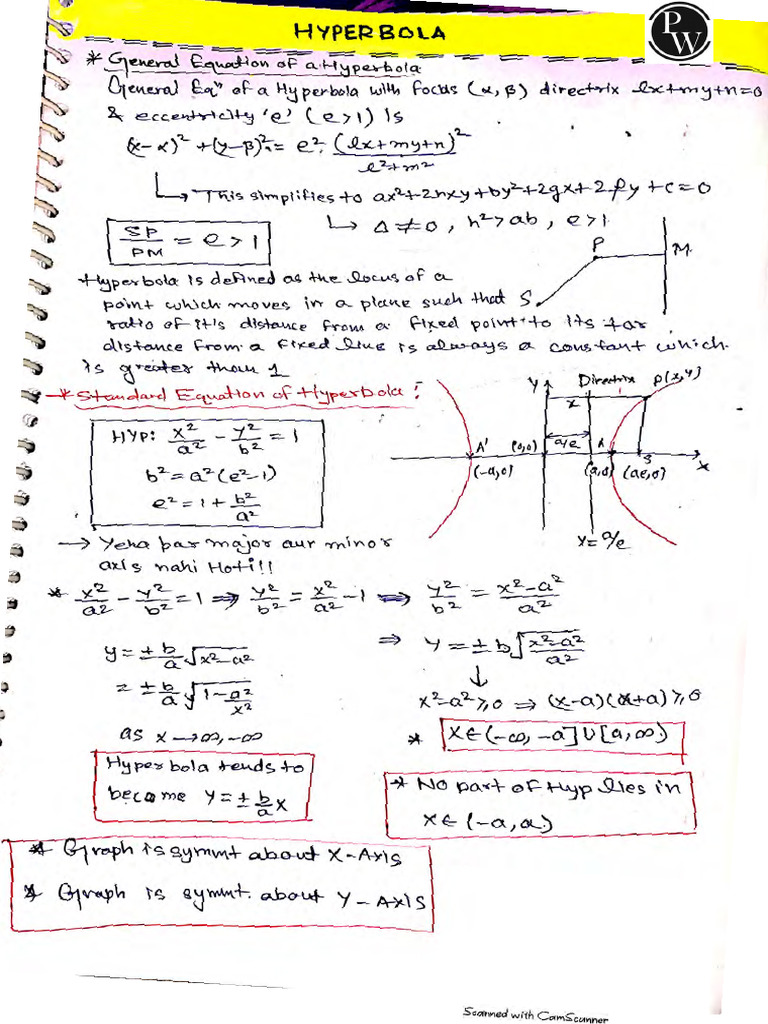 HYPERBOLA
PW
* General Equation of a Hyperbola
General Eqⁿ of a Hyperbola with focus (α, β) directrix lx+my+n=0
& eccentricity 'e' (e>1) is
(x-α)² + (y-β)² = e². (lx+my+n)² / l²+m²
↳ This simplifies to ax²+2hxy+by²+2gx+2fy+c=0
↳ Δ≠0, h²>ab, e>1
SP/PM = e > 1
P
M
S
Hyperbola is defined as the locus of a
point which moves in a plane such that
ratio of it's distance from a fixed point to its
distance from a fixed line is always a constant which
is greater than 1
* Standard Equation of Hyperbola:
HYP: x²/a² - y²/b² = 1
b² = a²(e²-1)
e² = 1 + b²/a²
Y
Directrix
P(x,y)
x
a/e
A'
(0,0)
A
S
X
(-a,0)
(a,0)
(ae,0)
x = a/e
→ Yeha par major aur minor
axis nahi Hoti!!
* x²/a² - y²/b² = 1 ⇒ y²/b² = x²/a² - 1 ⇒ y²/b² = x²-a²/a²
⇒ y = ± b√(x²-a²/a²)
y = ± b/a √(x²-a²)
= ± b/a √(1-a²/x²)
↓
x²-a² ≥ 0 ⇒ (x-a)(x+a) ≥ 0
as x → ∞, -∞
* x ∈ (-∞, -a] ∪ [a, ∞)
Hyperbola tends to
become y = ± b/a x
* No part of Hyp lies in
x ∈ (-a, a)
* Graph is symmt about X-Axis
* Graph is symmt. about Y-Axis
Scanned with CamScanner